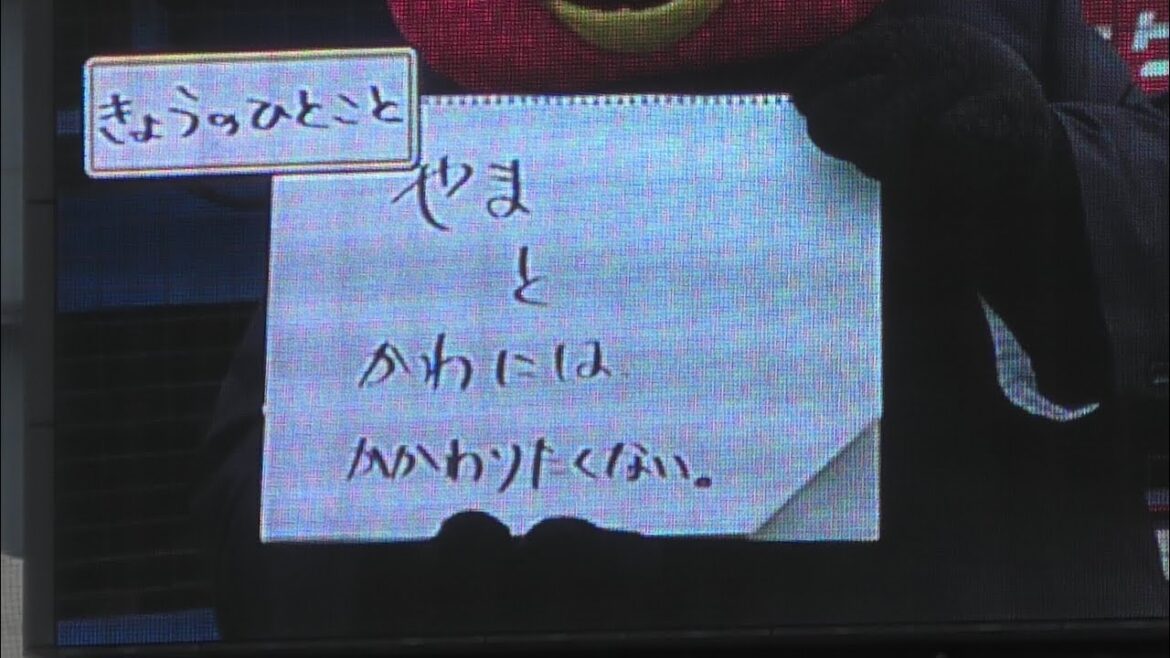 きょうのひとこと
やま
と
かわには
かかわりたくない。